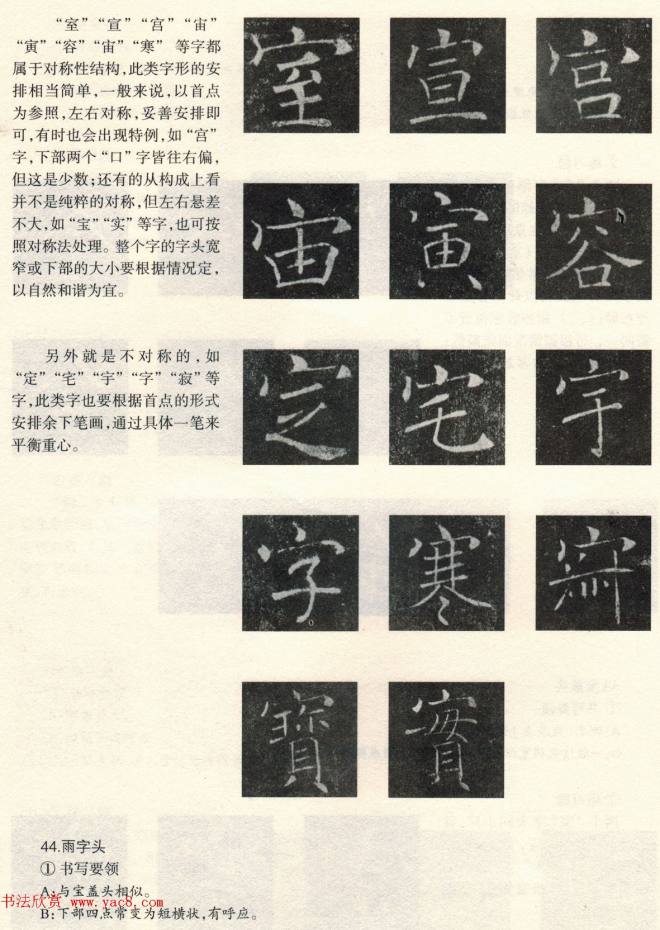 “室”“宣”“宫”“宙”
“寅”“容”“宙”“寒” 等字都
属于对称性结构，此类字形的安
排相当简单，一般来说，以首点
为参照，左右对称，妥善安排即
可，有时也会出现特例，如“宫”
字，下部两个“口”字皆往右偏，
但这是少数；还有的从构成上看
并不是纯粹的对称，但左右悬差
不大，如“宝”“实”等字，也可按
照对称法处理。整个字的字头宽
窄或下部的大小要根据情况定，
以自然和谐为宜。
室 宣 宫
宙 寅 容
另外就是不对称的，如
“定”“宅”“宇”“字”“寂”等
字，此类字也要根据首点的形式
安排余下笔画，通过具体一笔来
平衡重心。
定 宅 宇
字 寒
寶 實
44.雨字头
①书写要领
A：与宝盖头相似。
书法欣赏 www.yac8.com
B：下部四点常变为短横状，有呼应。